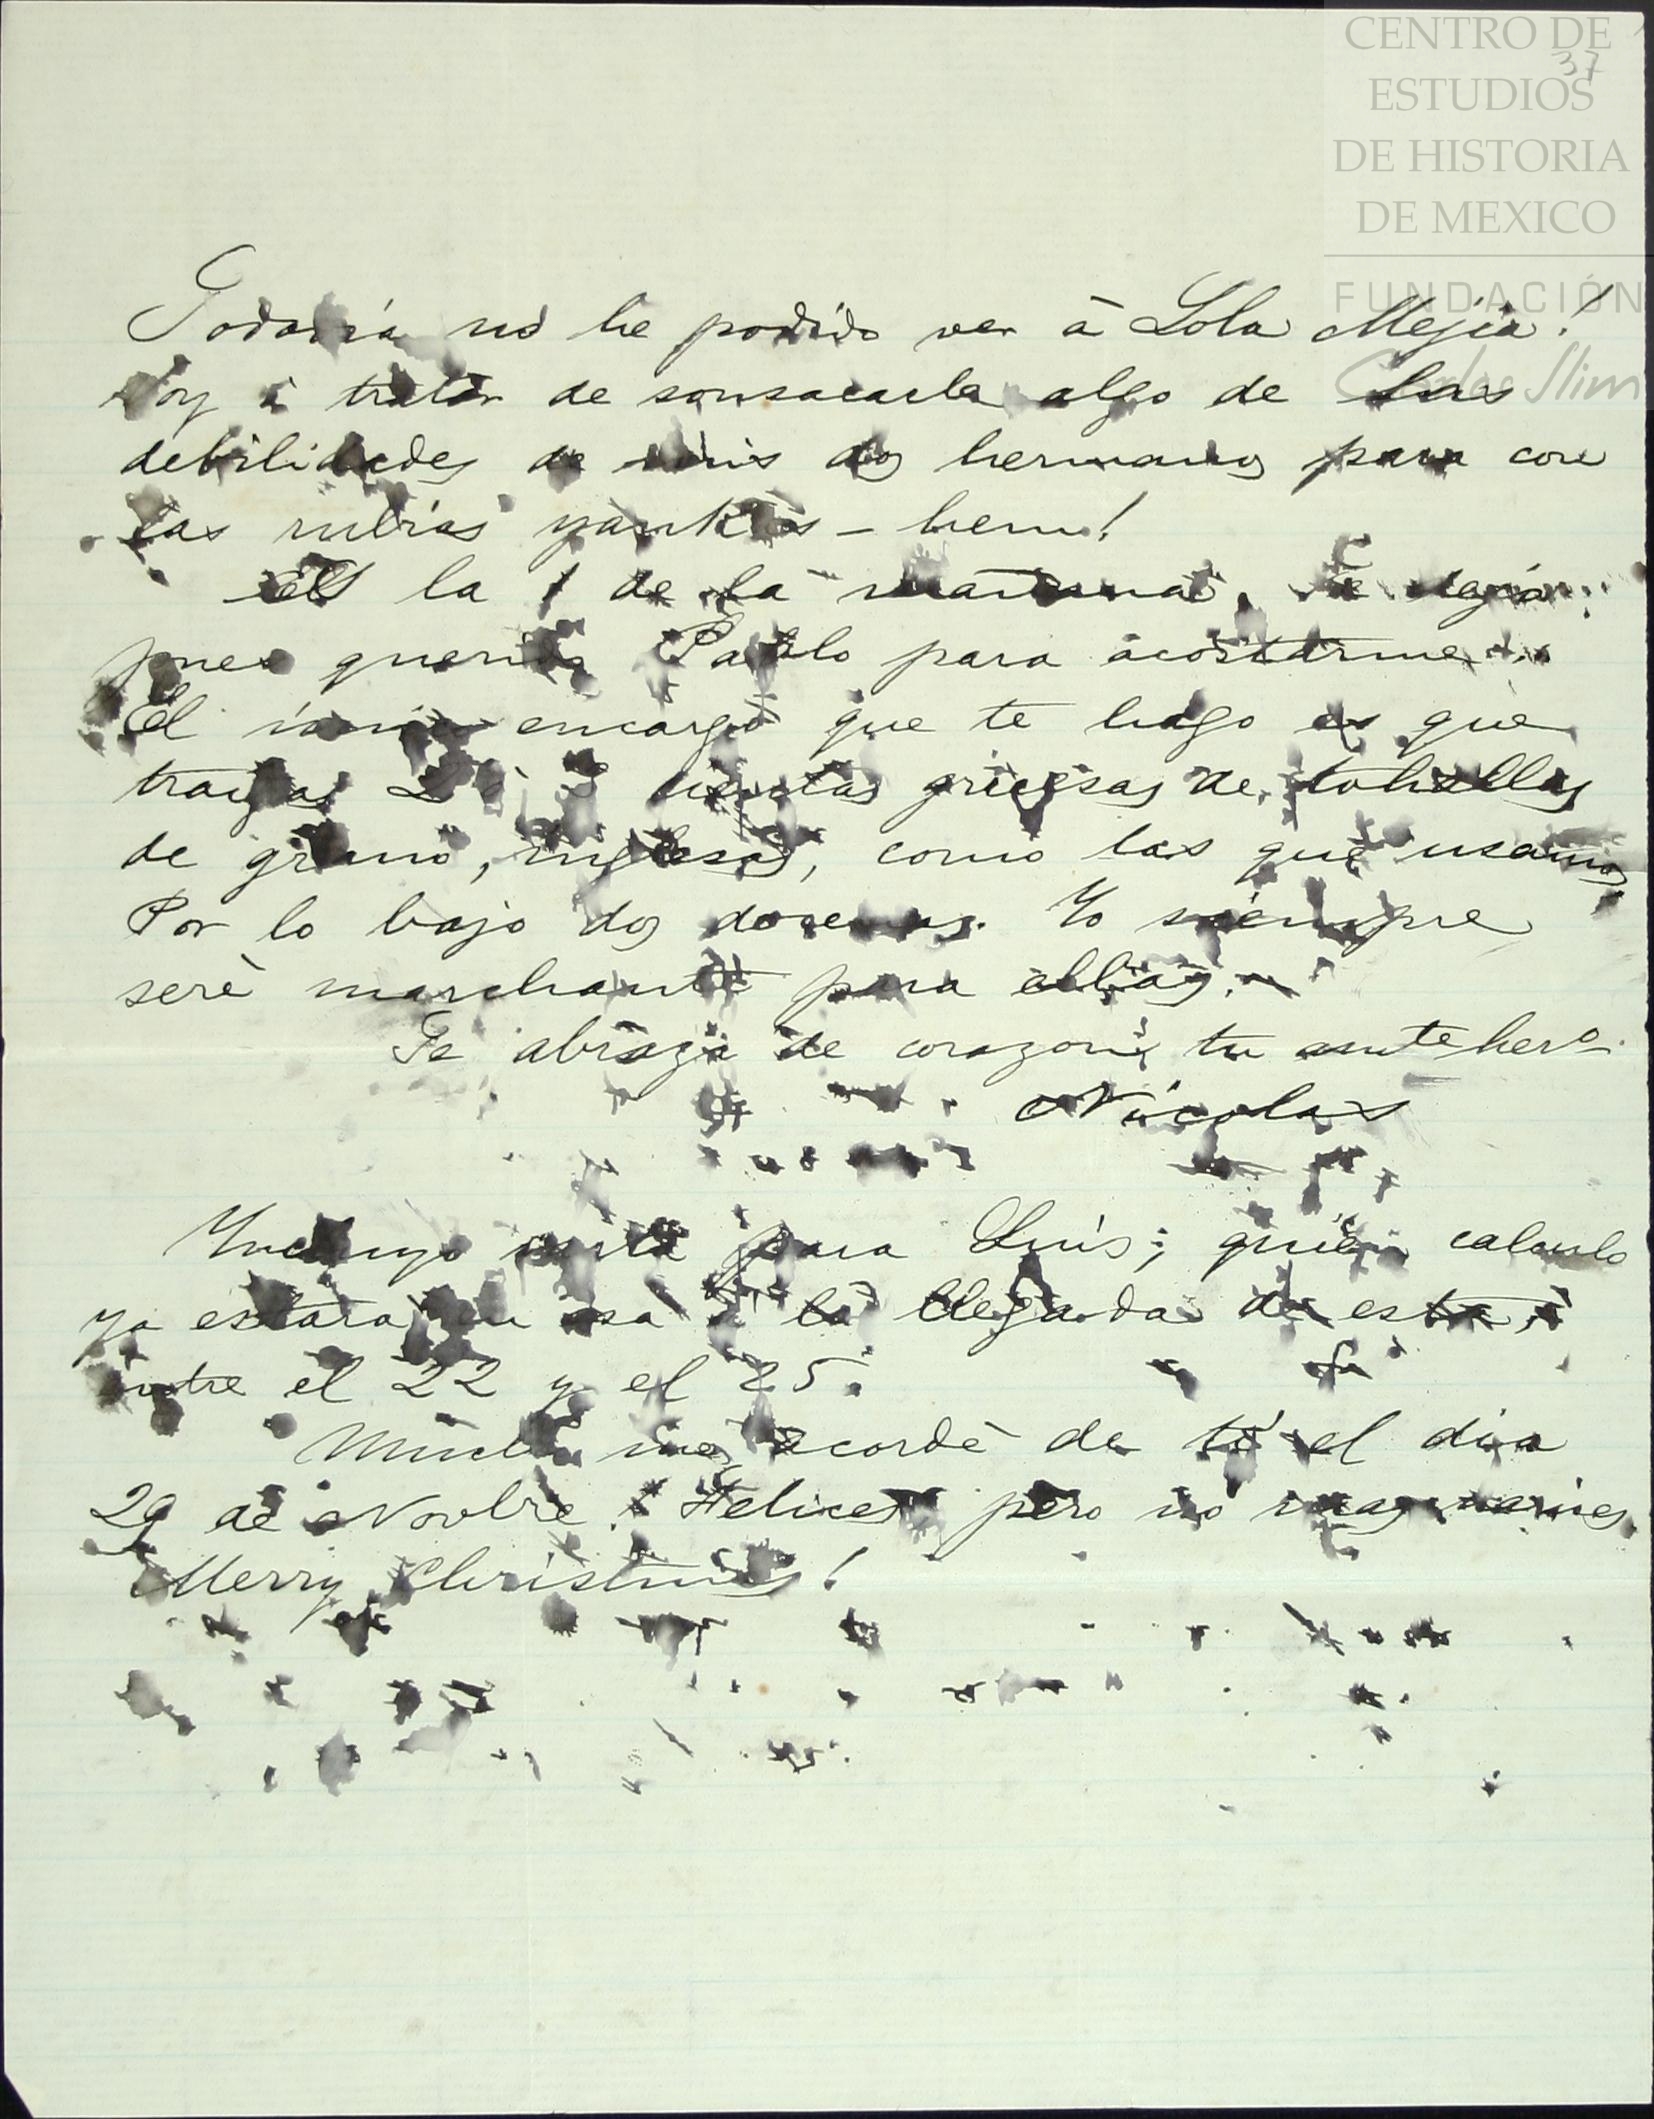 CENTRO DE
ESTUDIOS
DE HISTORIA
DE MEXICO
FUNDACIÓN
Carlos Slim
37
Todavía no he podido ver à Lola Mejia!
Voy à tratar de sonsacarla algo de las
debilidades de mis dos hermanos para con
las rubias yankees – hem!
Es la 1 de la mañana. Te dejo
pues querido Pablo para acostarme.
El único encargo que te hago es que
traigas 2 ó 3 gruesas de tobilleras
de , inglesas, como las que usamos.
Por lo bajo dos docenas. Yo siempre
serè marchante para ellas.
Te abraza de corazon tu amte hero.
Nicolas
Incluyo carta para Luis; quien calculo
ya estará en esa à la llegada de esta,
entre el 22 y el 25.
Mucho me acordè de ti el dia
29 de Novbre. Felices pero no
Merry Christmas!